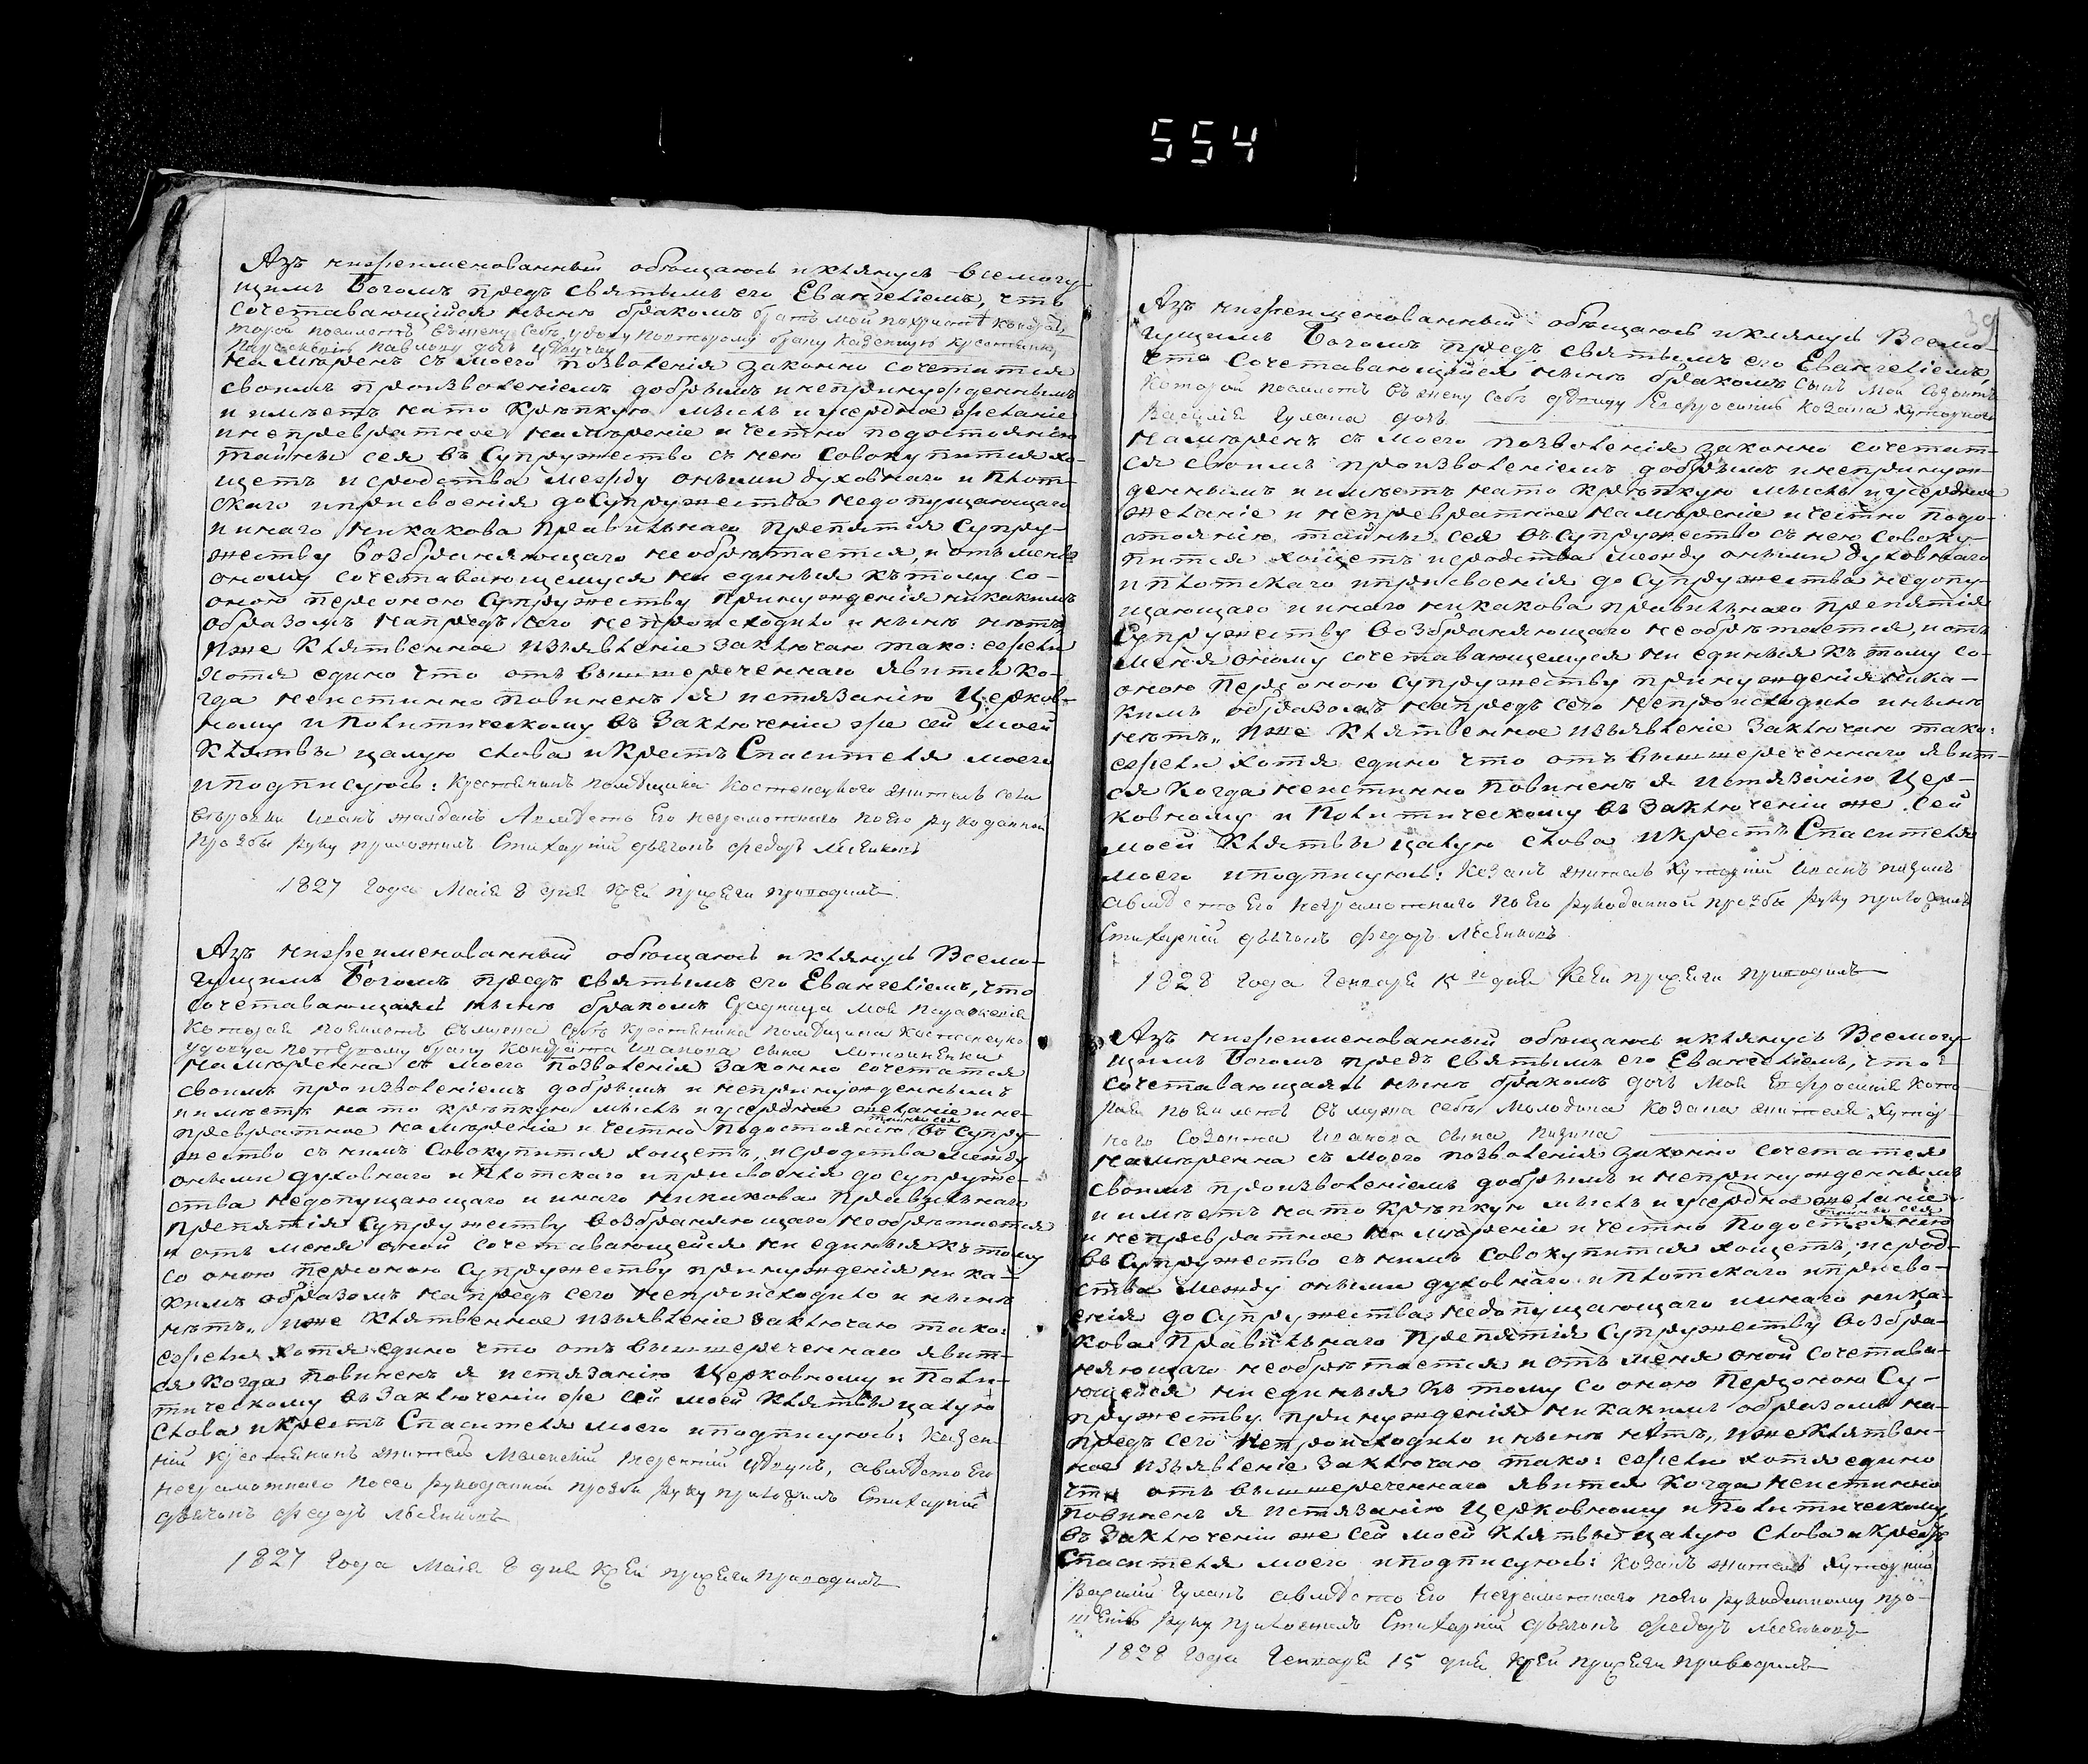 554
Азъ нижеименованный обѣщаюсь и клянусь всемогу-
щимъ Богомъ предъ святымъ его Евангелiемъ, что
сочетавающiйся нынѣ бракомъ братъ мой
поемлетъ въ жену себѣ удову по второму браку казенную крестьянку
Павлову дочь
намѣренъ съ моего позволенiя законно сочетатися
своимъ произволенiемъ добрымъ и непринужденнымъ
и имѣетъ на то крѣпкую мысль и усердное желанiе
и непревратное намѣренiе и честно по достоянiю
тайны сея въ супружество съ нею совокупитися хо-
щетъ и сродства между оными духовнаго и плот-
скаго и присвоенiя до супружества недопущающаго
и инаго никакова правильнаго препятiя супру-
жеству возбраняющаго необрѣтается, и отъ мене
оному сочетавающемуся ни единыя къ тому со-
оною персоною супружеству принужденiя никакимъ
образомъ напредъ сего непроисходило и нынѣ нѣтъ,
иже клятвенное изъявленiе заключаю тако: ежели
хотя едино что отъ вышшереченнаго явится ко-
гда неистинно повиненъ я истязанiю церков-
ному и политическому въ заключенiи же сей моей
клятвы цалую слова и крестъ Спасителя моего
и подписуюсь: крестьянинъ помѣщика Костенецкого житель села
Иванъ а вмѣсто его неграмотнаго по его рукоданной
прозбы руку приложилъ Стихарнiй дьячокъ Федоръ
1827 года Маiя 8 дня к сей присяги приводилъ
Азъ нижеименованный обѣщаюсь и клянусь Всемо-
гущимъ Богомъ предъ святымъ его Евангелiемъ, что
сочетавающаяся нынѣ бракомъ моя
которая поемлетъ въ мужа себѣ крестьянина помѣщика Костенецкого
удовца по первому браку Кондрата Иванова сына
намѣренна съ моего позволенiя законно сочетатся
своимъ произволенiемъ добрымъ и непринужденнымъ
и имѣетъ на то крѣпкую мысль и усердное желанiе и не-
превратное намѣренiе и честно по достоянiю тайны сея въ супру-
жество съ нимъ совокупитися хощетъ, и сродства между
оными духовнаго и плотскаго и присвоенiя до супруже-
ства недопущающаго и инаго никакова правильнаго
препятiя супружеству возбраняющаго необрѣтается
и отъ меня оной сочетавающейся ни единыя къ тому
со оною персоною супружеству принужденiя ника-
кимъ образомъ напредъ сего непроисходило и нынѣ
нѣтъ„ иже клятвенное изъявленiе заключаю тако:
ежели хотя едино что отъ вышшереченнаго явит-
ся когда повиненъ я истязанiю церковному и поли-
тическому въ заключенiи же сей моей клятвы цалую
слова и крестъ Спасителя моего и подписуюсь: Казен-
нiй крестьянинъ житель а вмѣсто его
неграмотного по его рукоданной прозби руку приложилъ Стихарнiй
дьячокъ Федоръ
1827 года Маiя 8 дня к сей присяги приводилъ
39
Азъ нижеименованный обѣщаюсь и клянусь Всемо-
гущимъ Богомъ предъ святымъ его Евангелiемъ,
что сочетавающiйся нынѣ бракомъ сынъ мой Созонтъ
которой поемлетъ въ жену себѣ дѣвицу Ефросинiю козака хуторного
Василiя Гулака дочь
намѣренъ съ моего позволенiя законно сочетат-
ся своимъ произволенiемъ добрымъ и непринуж-
деннымъ и имѣетъ на то крѣпкую мысль и усердное
желанiе и непревратное намѣренiе и честно по до-
стоянiю тайны сея въ супружество съ нею совоку-
питися хощетъ и сродства между оными духовнаго
и плотскаго и присвоенiя до супружества недопу-
щающаго и инаго никакова правильнаго препятiя
супружеству возбраняющаго необрѣтается, и отъ
меня оному сочетавающемуся ни единыя къ тому со-
оною персоною супружеству принужденiя ника-
кимъ образомъ напредъ сего непроисходило и нынѣ
нѣтъ„ иже клятвенное изъявленiе заключаю тако:
ежели хотя едино что отъ вышшереченнаго явит-
ся когда неистинно повиненъ я истязанiю цер-
ковному и политическому въ заключенiи же сей
моей клятвы цалую слова и крестъ Спасителя
моего и подписуюсь: Козакъ житель хуторнiй Иванъ
а вмѣсто его неграмотнаго по его рукоданной прозбы руку приложилъ
Стихарнiй дьячокъ Федоръ
1828 года Генваря 15 дня к сей присяги приводилъ
Азъ нижеименованный обѣщаюсь и клянусь Всемогу-
щимъ Богомъ предъ святымъ его Евангелiемъ, что
сочетавающаяся нынѣ бракомъ дочь моя Ефросинiя кото-
рая поемлетъ въ мужа себѣ молодика козака жителя хутор-
ного Созонта Иванова сына
намѣренна съ моего позволенiя законно сочетатся
своимъ произволенiемъ добрымъ и непринужденнымъ
и имѣетъ на то крѣпкую мысль и усердное желанiе
и непревратное намѣренiе и честно по достоянiю тайны сея
въ супружество съ нимъ совокупитися хощетъ, и срод-
ства между оными духовнаго и плотскаго и присво-
енiя до супружества недопущающаго и инаго ника-
кова правильнаго препятiя супружеству возбра-
няющаго необрѣтается и отъ меня оной сочетава-
ющейся ни единыя къ тому со оною персоною су-
пружеству принужденiя никакимъ образомъ на-
предъ сего непроисходило и нынѣ нѣтъ, иже клятвен-
ное изъявленiе заключаю тако: ежели хотя едино
что отъ вышшереченнаго явится когда неистинно
повиненъ я истязанiю церковному и политическому,
въ заключенiи же сей моей клятвы цалую слова и крестъ
Спасителя моего и подписуюсь: Козакъ житель хуторнiй
Василiй Гулакъ а вмѣсто его неграмотнаго по его рукоданному про-
шенiю руку приложилъ Стихарнiй дьячокъ Федоръ
1828 года Генваря 15 дня к сей присяги приводилъ